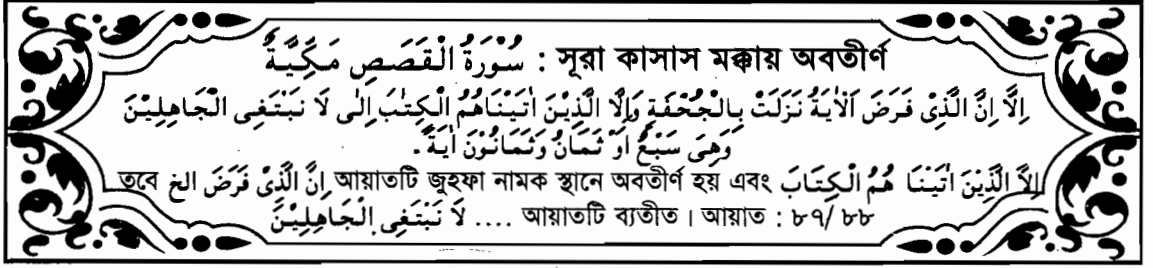 سُوْرَةُ الْقَصَصِ مَكِّيَّةٌ : সূরা কাসাস মক্কায় অবতীর্ণ
اِلَّا اِنَّ الَّذِىْ فَرَضَ اَلْاٰيَةُ نَزَلَتْ بِالْجُحْفَةِ وَاِلَّا الَّذِيْنَ اٰتَيْنَاهُمُ الْكِتٰبَ اِلٰى لَا نَبْتَغِى الْجَاهِلِيْنَ
وَهِىَ سَبْعٌ اَوْ ثَمَانٌ وَثَمَانُوْنَ اٰيَةً .
তবে اِنَّ الَّذِىْ فَرَضَ الخ আয়াতটি জুহফা নামক স্থানে অবতীর্ণ হয় এবং اِلاَّ الَّذِيْنَ اٰتَيْنَا هُمُ الْكِتَابَ
لَا نَبْتَغِى الْجَاهِلِيْنَ .... আয়াতটি ব্যতীত। আয়াত : ৮৭/ ৮৮